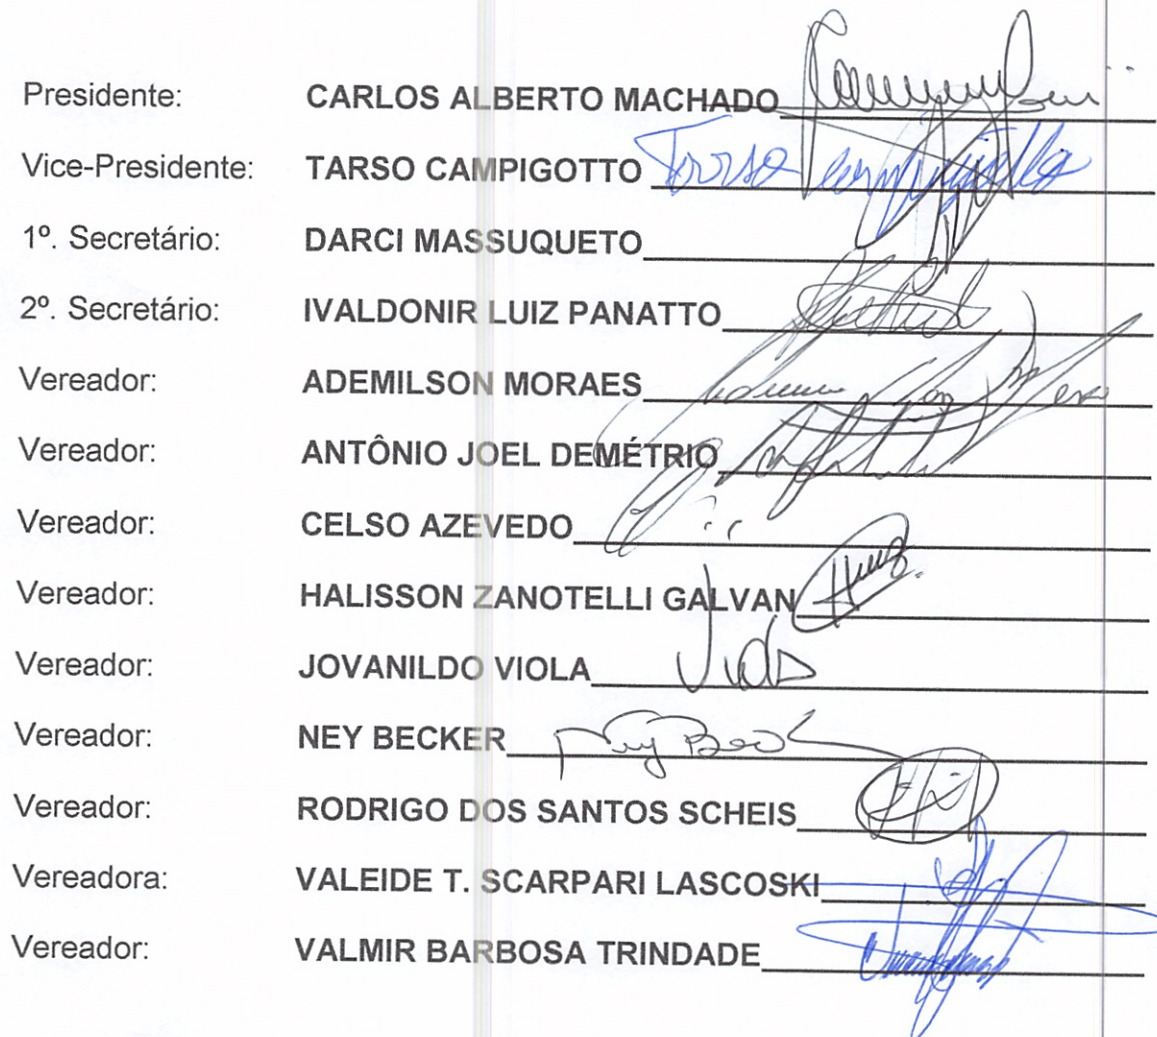 Presidente: CARLOS ALBERTO MACHADO
Vice-Presidente: TARSO CAMPIGOTTO Tarso Campigotto
1º. Secretário: DARCI MASSUQUETO
2º. Secretário: IVALDONIR LUIZ PANATTO
Vereador: ADEMILSON MORAES
Vereador: ANTÔNIO JOEL DEMÉTRIO
Vereador: CELSO AZEVEDO
Vereador: HALISSON ZANOTELLI GALVAN
Vereador: JOVANILDO VIOLA
Vereador: NEY BECKER Ney Beck
Vereador: RODRIGO DOS SANTOS SCHEIS
Vereadora: VALEIDE T. SCARPARI LASCOSKI
Vereador: VALMIR BARBOSA TRINDADE